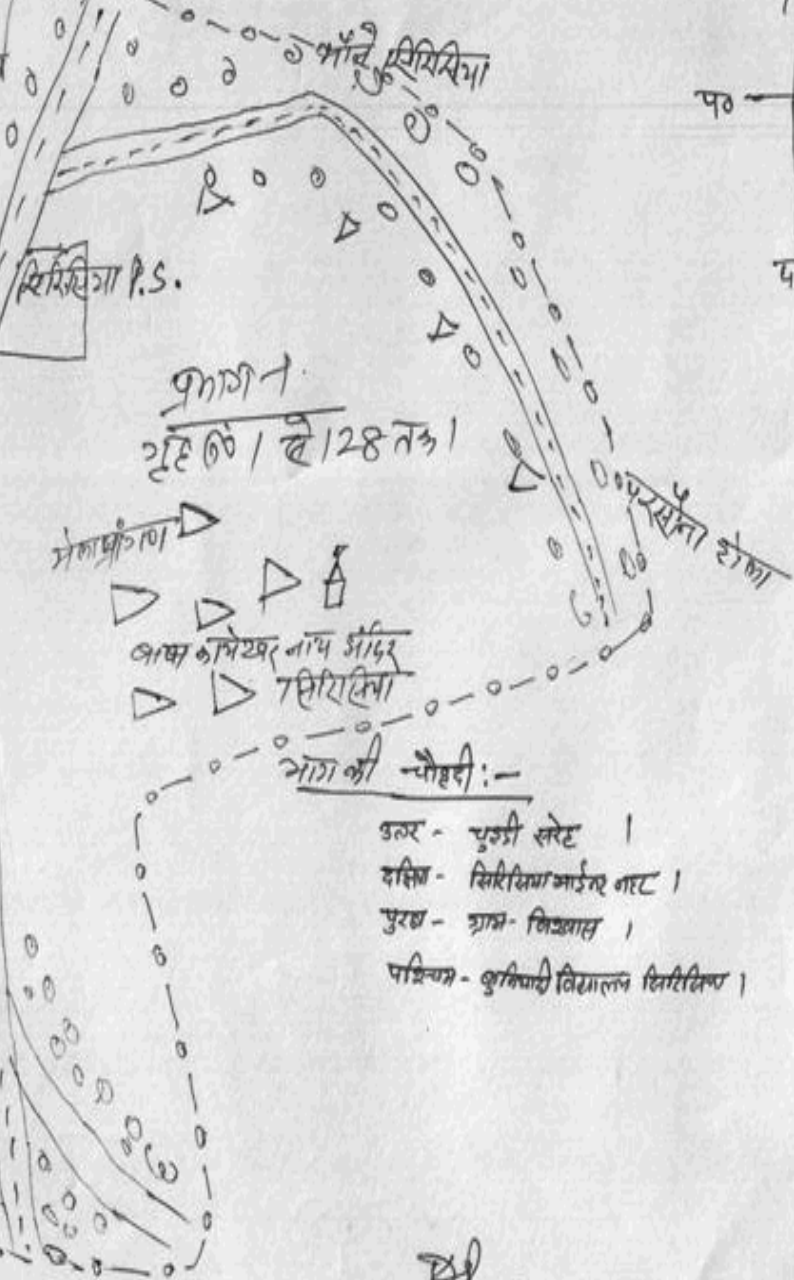 मौजे सिरिसिया
प०
प
सिरिसिया P.S.
प्रभाग-1
गृह सं० 1 से 128 तक।
परसौना टोला
मेला प्रांगण
बाबा कामेश्वर नाथ मंदिर
सिरिसिया
भाग की चौहदी :-
उत्तर - सरेह ।
दक्षिण - सिरिसिया माईनर नहर ।
पुरब - ग्राम - बिश्वास ।
पश्चिम - बुनियादी विद्यालय सिरिसिया ।